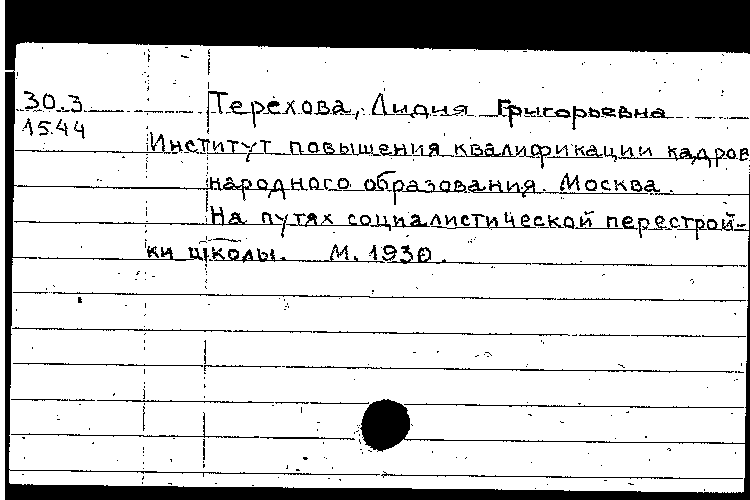 30.3 Терехова, Лидия Григорьевна
15.44 Институт повышения квалификации кадров
народного образования. Москва.
На путях социалистической перестрой-
ки школы. М. 1930.